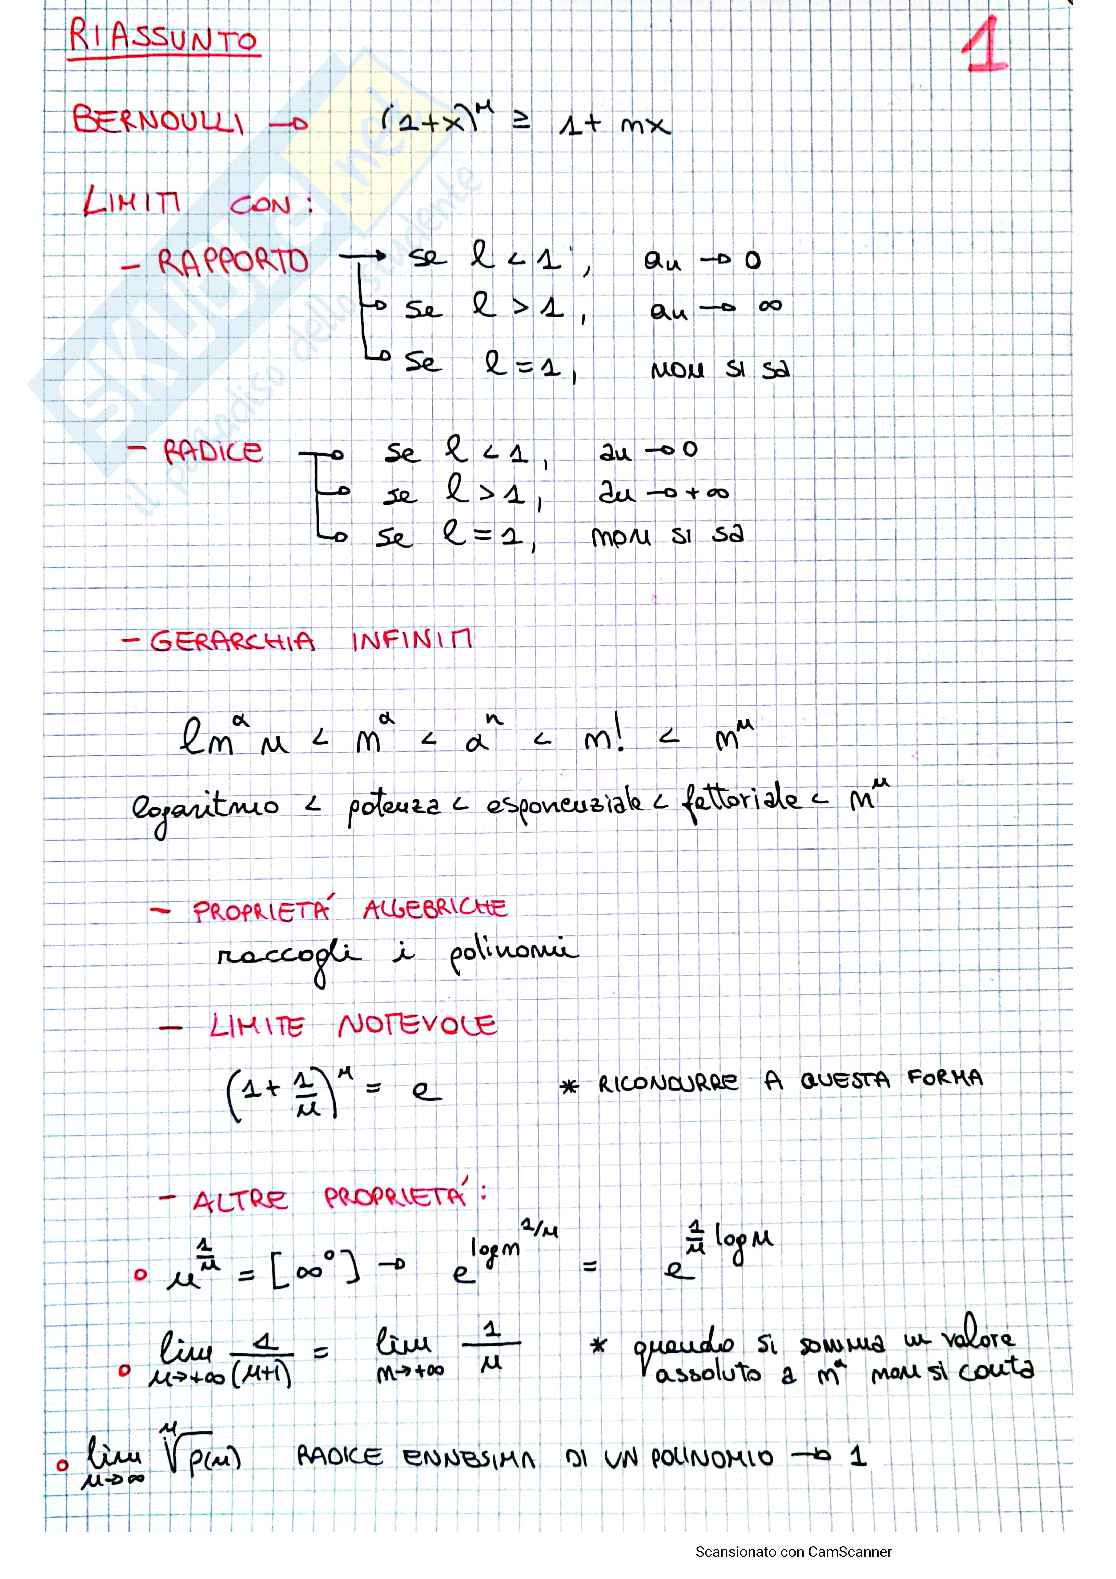 RIASSUNTO
1
BERNOULLI → (1+x)^n ≥ 1+ nx
LIMITI CON:
- RAPPORTO → se l < 1, an → 0
→ se l > 1, an → ∞
→ se l = 1, non si sa
- RADICE → se l < 1, an → 0
→ se l > 1, an → +∞
→ se l = 1, non si sa
- GERARCHIA INFINITI
ln^α n < n^α < a^n < n! < n^n
logaritmo < potenza < esponenziale < fattoriale < n^n
- PROPRIETÁ ALGEBRICHE
raccogli i polinomi
- LIMITE NOTEVOLE
(1 + 1/n)^n = e * RICONDURRE A QUESTA FORMA
- ALTRE PROPRIETÁ:
• n^(1/n) = [∞^0] → e^(log n^(1/n)) = e^(1/n log n)
• lim n→+∞ 1/(n+1) = lim n→+∞ 1/n * quando si somma un valore
assoluto a n^a non si conta
• lim n→∞ ⁿ√p(n) RADICE ENNESIMA DI UN POLINOMIO → 1
SKUOLA.net
il paradiso dello studente
Scansionato con CamScanner